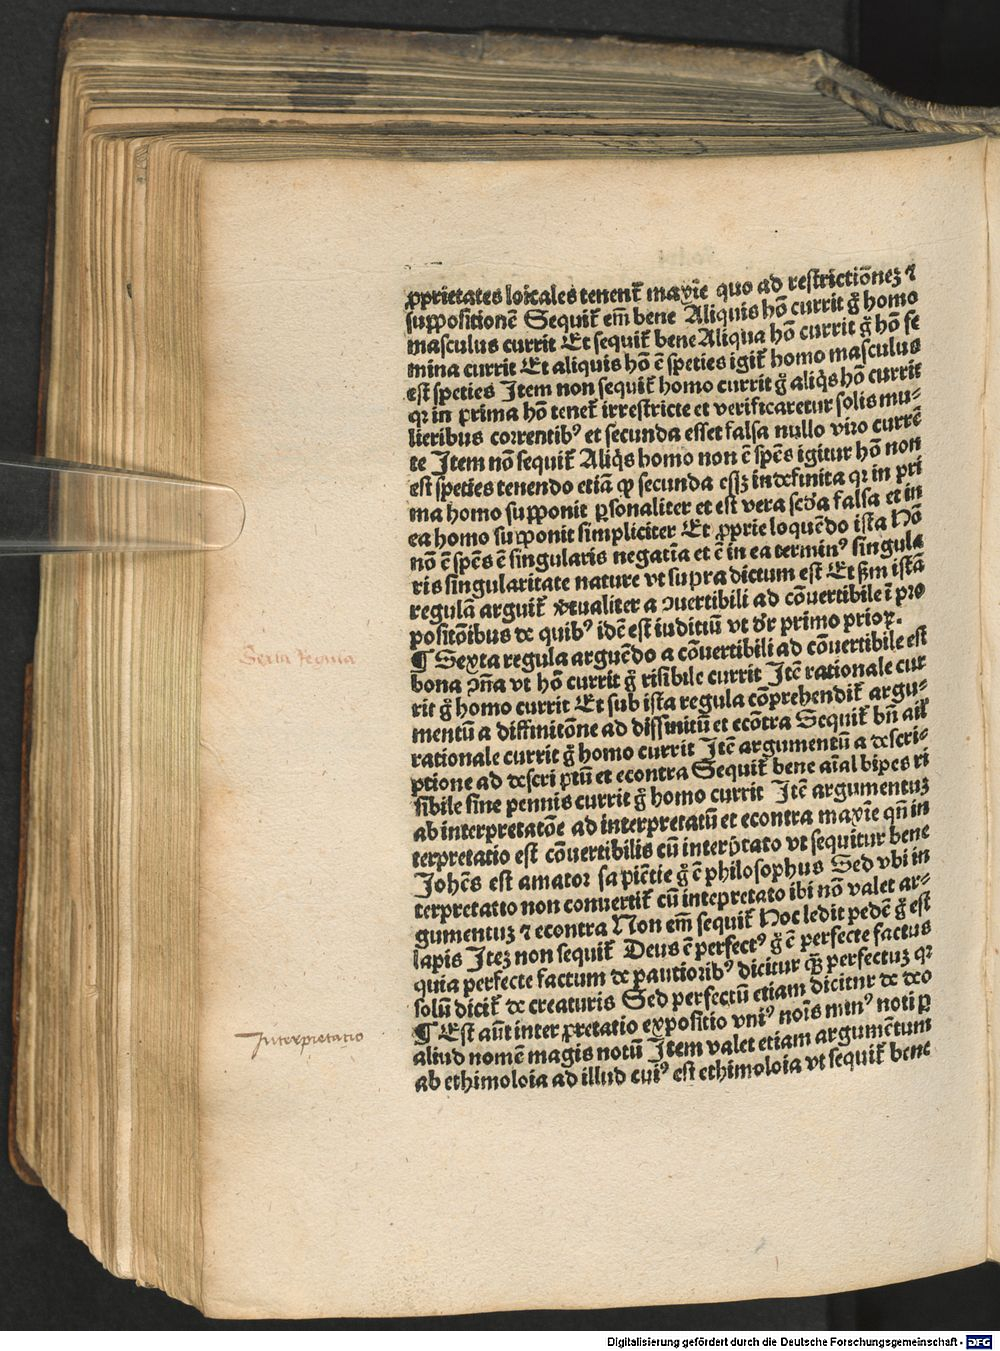 ꝓprietates loicales tenent᷑ maxīe quo ad restrictiōneʒ ⁊
suppositionē Sequit᷑ em̄ bene Aliquis hō currit g̊ homo
masculus currit Et sequit᷑ bene Aliqua hō currit g̊ hō fe
mina currit Et aliquis hō ē speties igit᷑ homo masculus
est speties Item non sequit᷑ homo currit g̊ aliq̇s hō currit
qꝛ in prima hō tenet᷑ irrestricte et verificaretur solis mu⸗
lieribus correntibꝰ et secunda esset falsa nullo viro currē
te Item nō sequit᷑ Aliq̇s homo non ē spēs igitur hō non
est speties tenendo etiā ꝙ secunda esʒ indefinita qꝛ in pri
ma homo supponit ꝑsonaliter et est vera secd̄a falsa et in
ea homo supponit simpliciter Et ꝓprie loquēdo ista Hō
nō ē spēs ē singularis negatīa et ē in ea terminꝰ singula
ris singularitate nature vt supra dictum est Et ẜm istā
regulā arguit᷑ v̓tualiter a ꝯuertibili ad cōuertibile ī pro
positōibus de quibꝰ idē est iuditiū vt dr̄ primo prioꝝ.
¶ Sexta regula arguēdo a cōuertibili ad cōuertibile est
bona ꝯn̄a vt hō currit g̊ risibile currit Itē rationale cur
rit g̊ homo currit Et sub ista regula cōprehendit᷑ argu⸗
mentū a diffinitōne ad diffinitū et ecōtra Sequit᷑ bn̄ aīl
rationale currit g̊ homo currit Itē argumentū a descri⸗
ptione ad descriptū et econtra Sequit᷑ bene aīal bipes ri
sibile sine pennis currit g̊ homo currit Itē argumentuʒ
ab interpretatōe ad interpretatū et econtra maxīe qn̄ in
terpretatio est cōuertibilis cū interp̄tato vt sequitur bene
Johēs est amator sapiētie g̊ ē philosophus Sed vbi in
terpretatio non conuertit᷑ cū intepretato ibi nō valet ar⸗
gumentuʒ ⁊ econtra Non em̄ sequit᷑ Hoc ledit pedē g̊ est
lapis Iteʒ non sequit᷑ Deus ē perfectꝰ g̊ ē perfecte factus
quia perfecte factum de pautioribꝰ dicitur qꝫ̄ perfectuʒ qꝛ
solū dicit᷑ de creaturis Sed perfectū etiam dicitur de deo
¶ Est aūt interpretatio expositio vniꝰ noīs minꝰ noti ꝑ
aliud nomē magis notū Item valet etiam argumētum
ab ethimoloia ad illud cuiꝰ est ethimoloia vt sequit᷑ bene
Sexta regula
Interpretatio
Digitalisierung gefördert durch die Deutsche Forschungsgemeinschaft - DFG